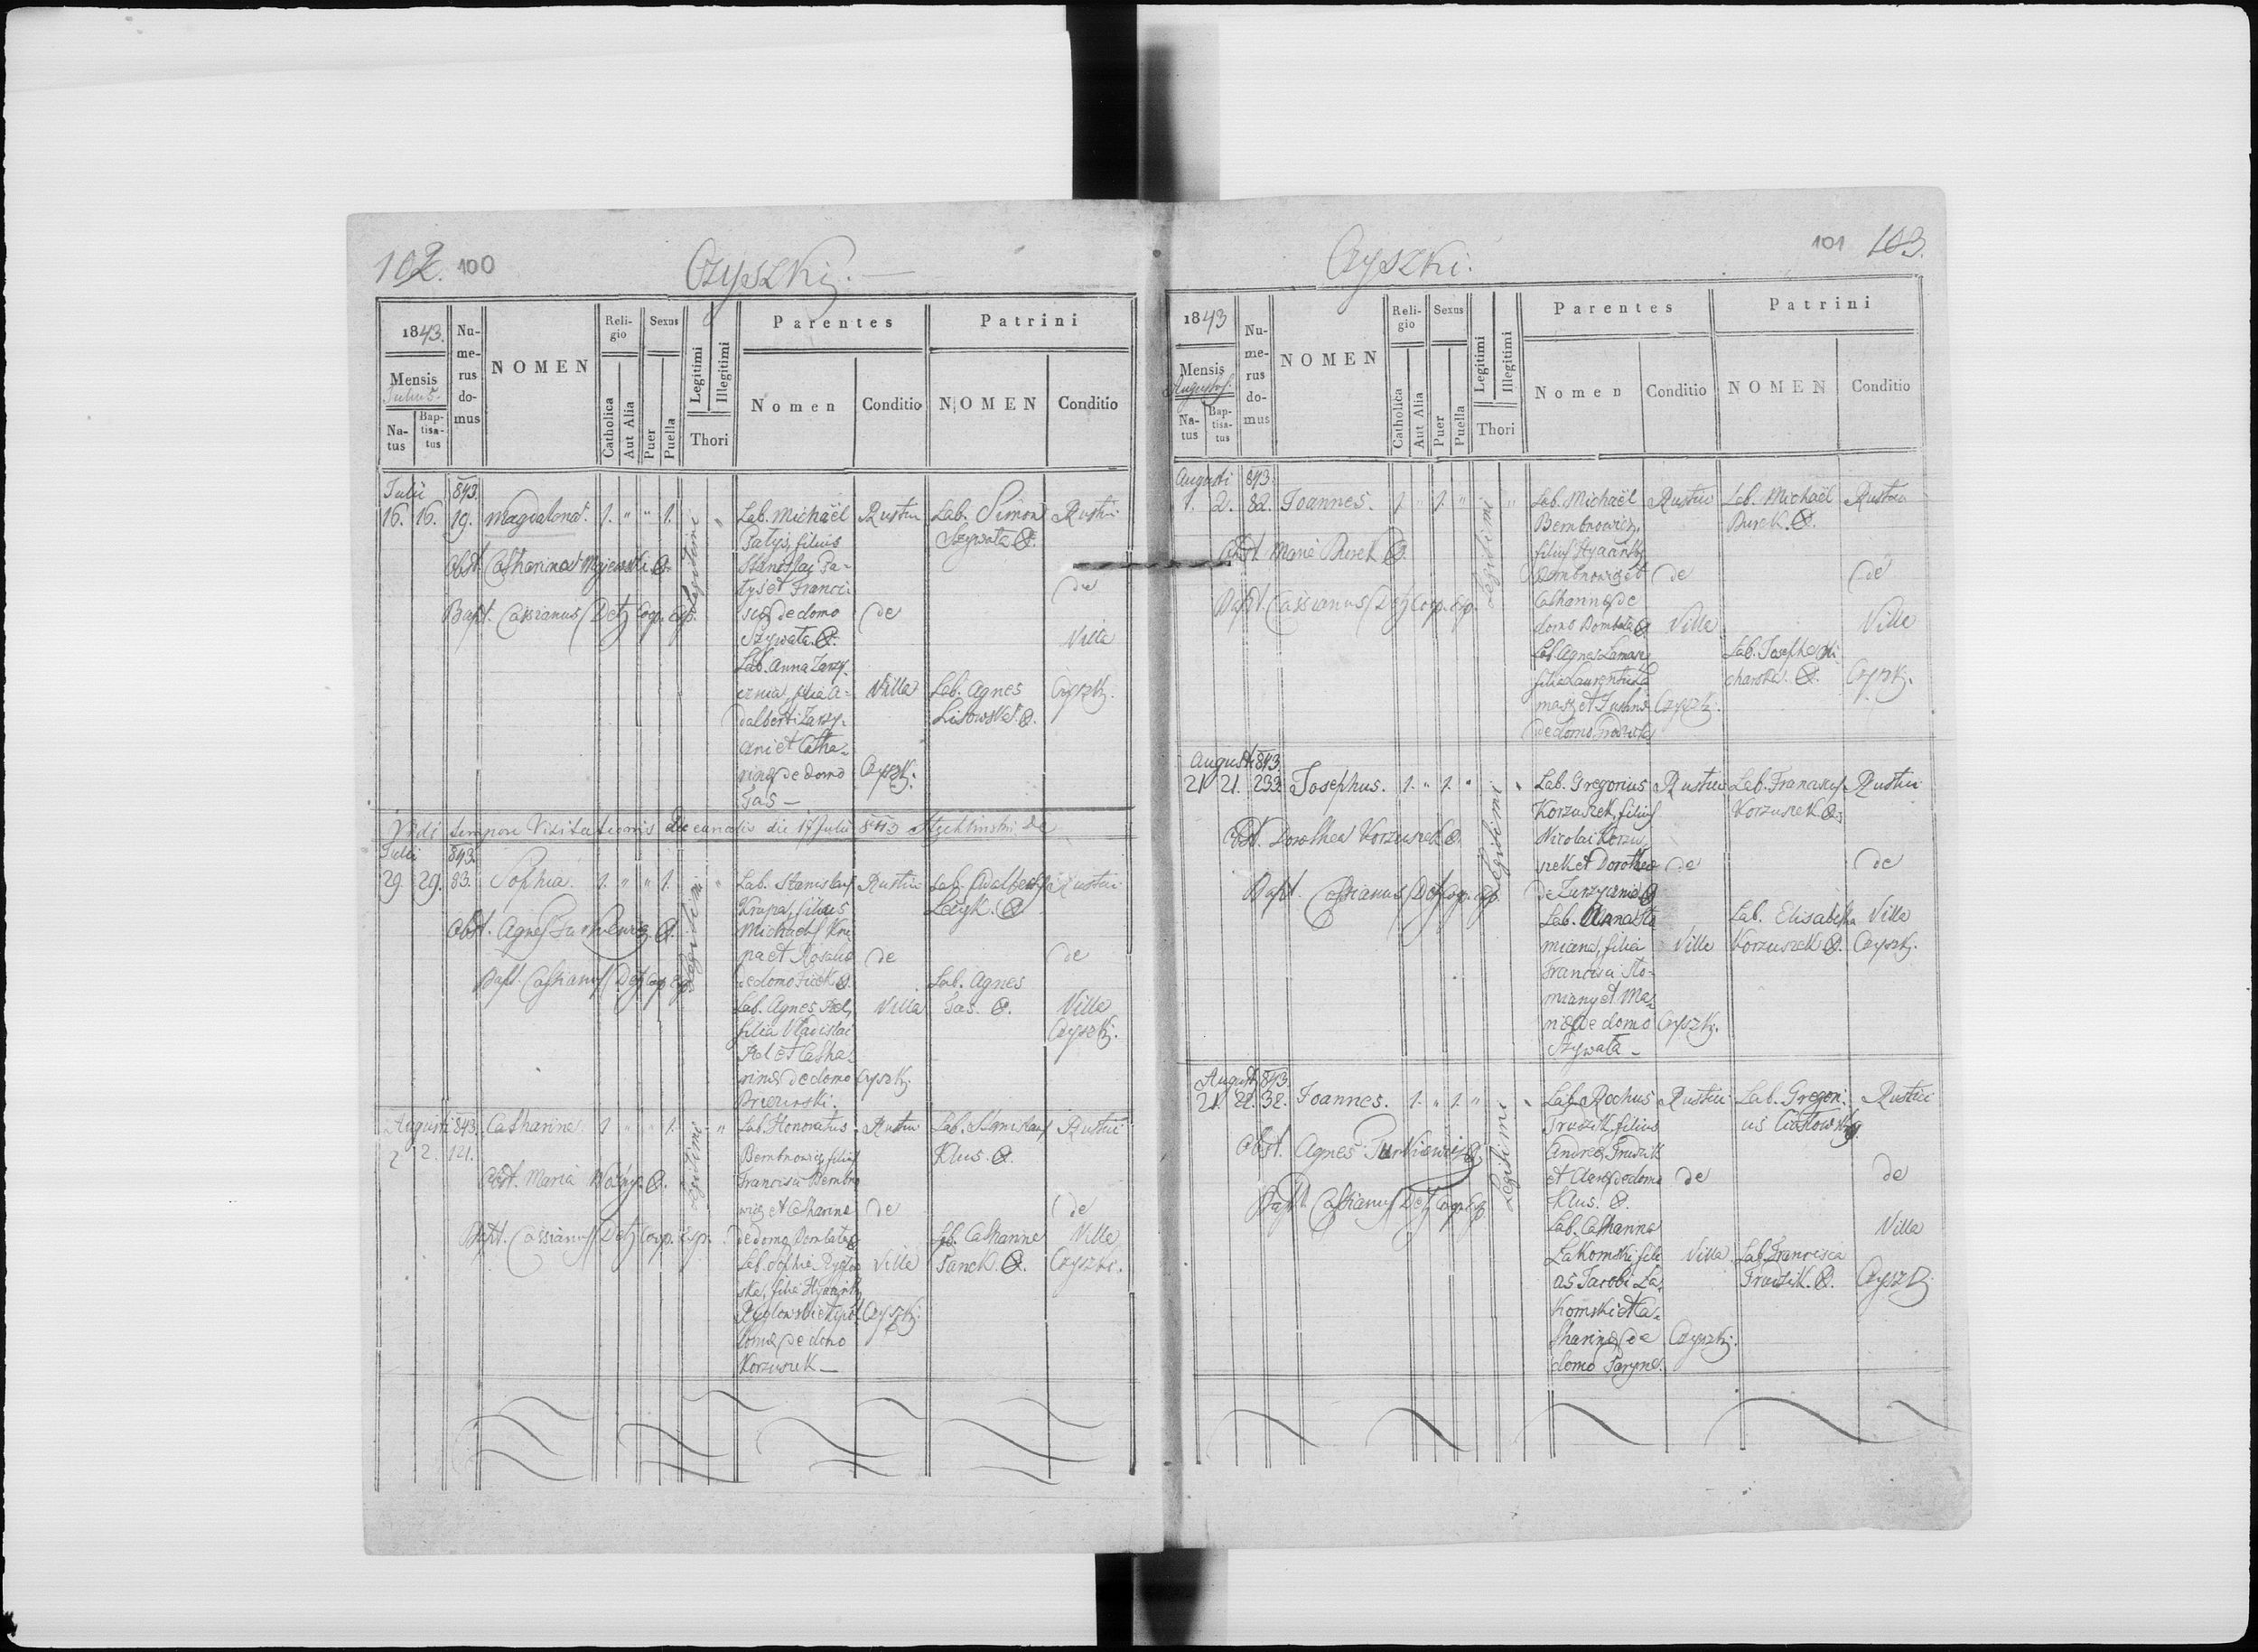 102. 100
Czyszki. —
1843.
Mensis
Julius.
Na-
tus
Bap-
tisa-
tus
Nu-
me-
rus
do-
mus
NOMEN
Reli-
gio
Catholica
Aut Alia
Sexus
Puer
Puella
Legitimi
Illegitimi
Thori
Parentes
Nomen
Conditio
Patrini
NOMEN
Conditio
Julii 843.
16. 16. 19. Magdalena. 1. " " 1. "
Legitimi
Obst. Catharina Majewski
Bapt. Cassianus Detz Coop. Exp.
Lab. Michaël
Patys, filius
Stanislai Pa-
tys et Franci-
scæ de domo
Szywała
Lab. Anna Zarzy-
cznia, filia A-
dalberti Zarzy-
czni et Catha-
rinæ de domo
Tas —
Rustici
de
Villa
Czyszki.
Lab. Simon
Szywała
Lab. Agnes
Lisowska
Rustici
de
Villa
Czyszki.
Vidi tempore Visitationis Decanalis die 17 Julii 843
Julii 843.
29. 29. 83. Sophia. 1. " " 1. "
Legitimi
Obst. Agnes
Bapt. Cassianus Detz Coop. Exp.
Lab. Stanislaus
Krupa, filius
Michaelis Kru-
pa et Rosaliæ
de domo
Lab. Agnes Kel,
filia Vladislai
Kel et Catha-
rinæ de domo
Rustici
de
Villa
Czyszki.
Lab. Adalbertus
Łożyk.
Lab. Agnes
Tas.
Rustici
de
Villa
Czyszki.
Augusti 843.
2 2. 121. Catharina 1 " " 1. "
Legitimi
Obst. Maria
Bapt. Cassianus Detz Coop. Exp.
Lab. Honoratus
Bembnowicz, filius
Francisci Bembno
wicz et Catharinæ
de domo
Lab. Sophia
ska, filia Hyacinthi
de domo
Korzuszek —
Rustici
de
Villa
Czyszki.
Lab. Stanislaus
Klus.
Lab. Catharina
Panek
Rustici
de
Villa
Czyszki.
Czyszki.
101 103.
1843
Mensis
Augustus.
Na-
tus
Bap-
tisa-
tus
Nu-
me-
rus
do-
mus
NOMEN
Reli-
gio
Catholica
Aut Alia
Sexus
Puer
Puella
Legitimi
Illegitimi
Thori
Parentes
Nomen
Conditio
Patrini
NOMEN
Conditio
Augusti 843.
1. 2. 82. Joannes. 1. " 1. " "
Legitimi
Obst. Maria Burek
Bapt. Cassianus Detz Coop. Exp.
Lab. Michaël
Bembnowicz,
filius Hyacinthi
Bembnowicz et
Catharinæ de
domo
Lab. Agnes Lamasz
filia Laurentii La
masz et Justinæ
de domo
Rustici
de
Villa
Czyszki.
Lab. Michaël
Burek.
Lab. Josepha
Rustici
de
Villa
Czyszki.
Augusti 843.
21 21. 233. Josephus. 1. " 1. " "
Legitimi
Obst. Dorothea Korzuszek
Bapt. Cassianus Detz Coop. Exp.
Lab. Gregorius
Korzuszek, filius
Nicolai Korzu
szek et Dorotheæ
de Zarzycznia
Lab. Anna Sło
miana, filia
Francisci Sło-
miany et Ma-
riæ de domo
Szywała —
Rustici
de
Villa
Czyszki.
Lab. Franciscus
Korzuszek
Lab. Elisabetha
Korzuszek
Rustici
de
Villa
Czyszki.
Augusti 843.
21. 22. 32. Joannes. 1. " 1. " "
Legitimi
Obst. Agnes
Bapt. Cassianus Detz Coop. Exp.
Lab. Rochus
Trudzik, filius
Andreæ Trudzik
et de domo
Klus.
Lab. Catharina
Łakomski, fili
as Jacobi Ła-
komski et Ca-
tharinæ de
domo
Rustici
de
Villa
Czyszki.
Lab. Gregori
us
Lab. Francisca
Trudzik.
Rustici
de
Villa
Czyszki.